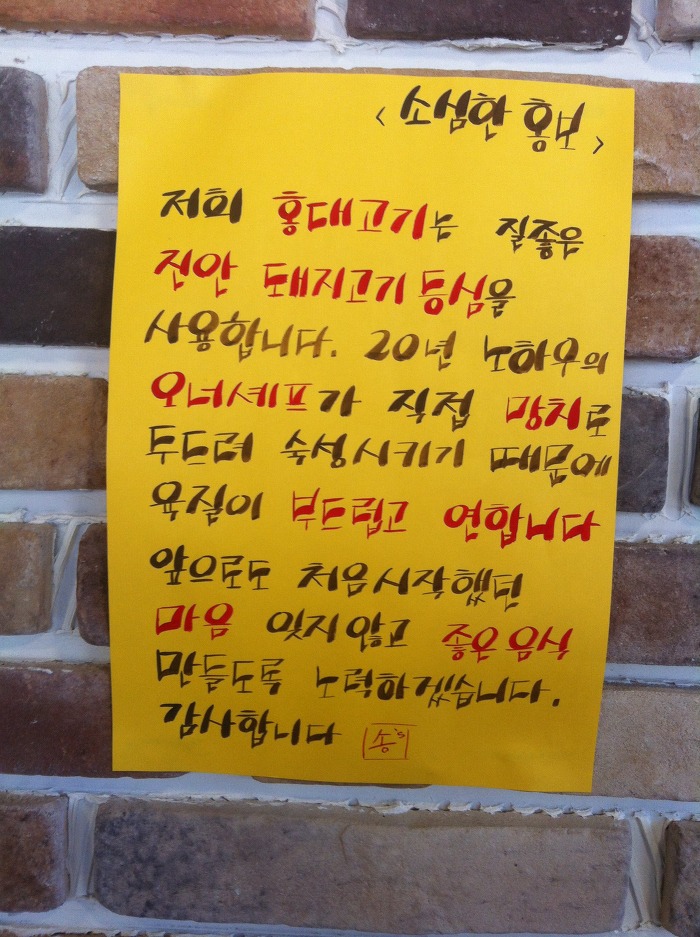 < 소심한 홍보 >
저희 홍대고기는 질좋은
진안 돼지고기 등심을
사용합니다. 20년 노하우의
오너셰프가 직접 망치로
두드려 숙성시키기 때문에
육질이 부드럽고 연합니다
앞으로도 처음시작했던
마음 잊지않고 좋은음식
만들도록 노력하겠습니다.
감사합니다 송's